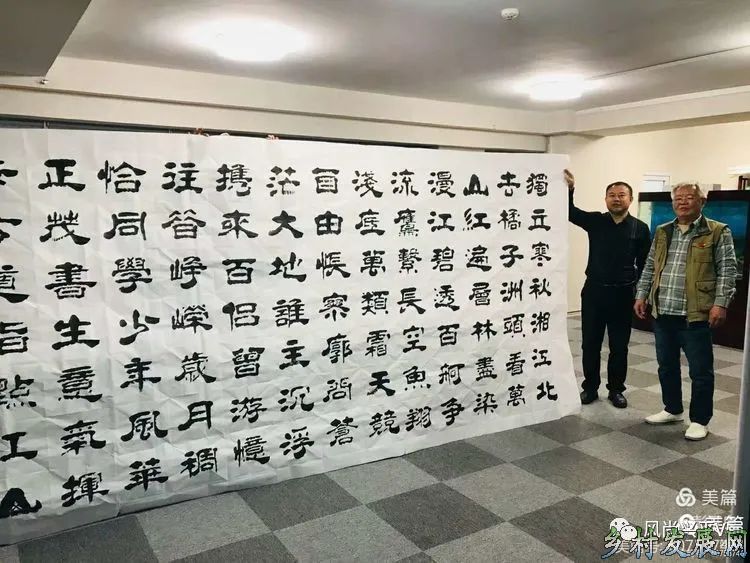 獨立寒秋湘江北
去橘子洲頭看萬
山紅遍層林盡染
漫江碧透百舸争
流鷹繫長空魚翔
淺底萬類霜天競
自由悵寥廓問蒼
茫大地誰主沉浮
攜來百侣曾游憶
往昔崢嶸歲月稠
恰同學少年風華
正茂書生意氣揮
方遒指點江山
美篇
风尚
乡村发展网